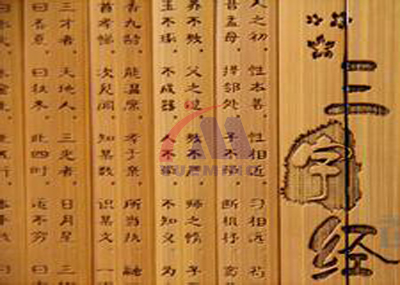 三字经
人之初 性本善 性相近 习相远 苟
昔孟母 择邻处 子不学 断机杼
养不教 父之过 教不严 师之惰 子
玉不琢 不成器 人不学 不知义 为
香九龄 能温席 孝于亲 所当执 融
首孝悌 次见闻 知某数 识某文 一
三才者 天地人 三光者 日月星 三
曰春夏 曰秋冬 此四时 运不穷 曰